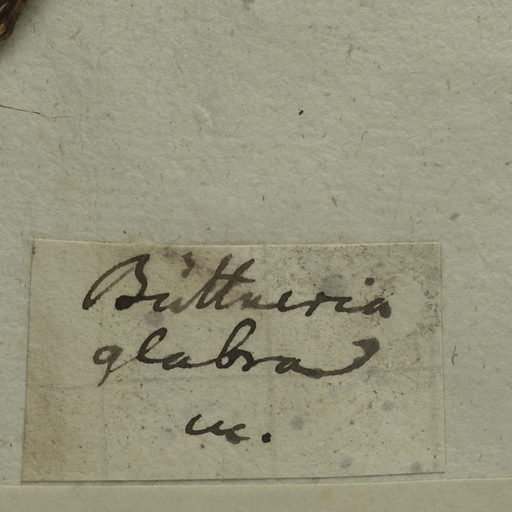 Büttneria
glabra
m.